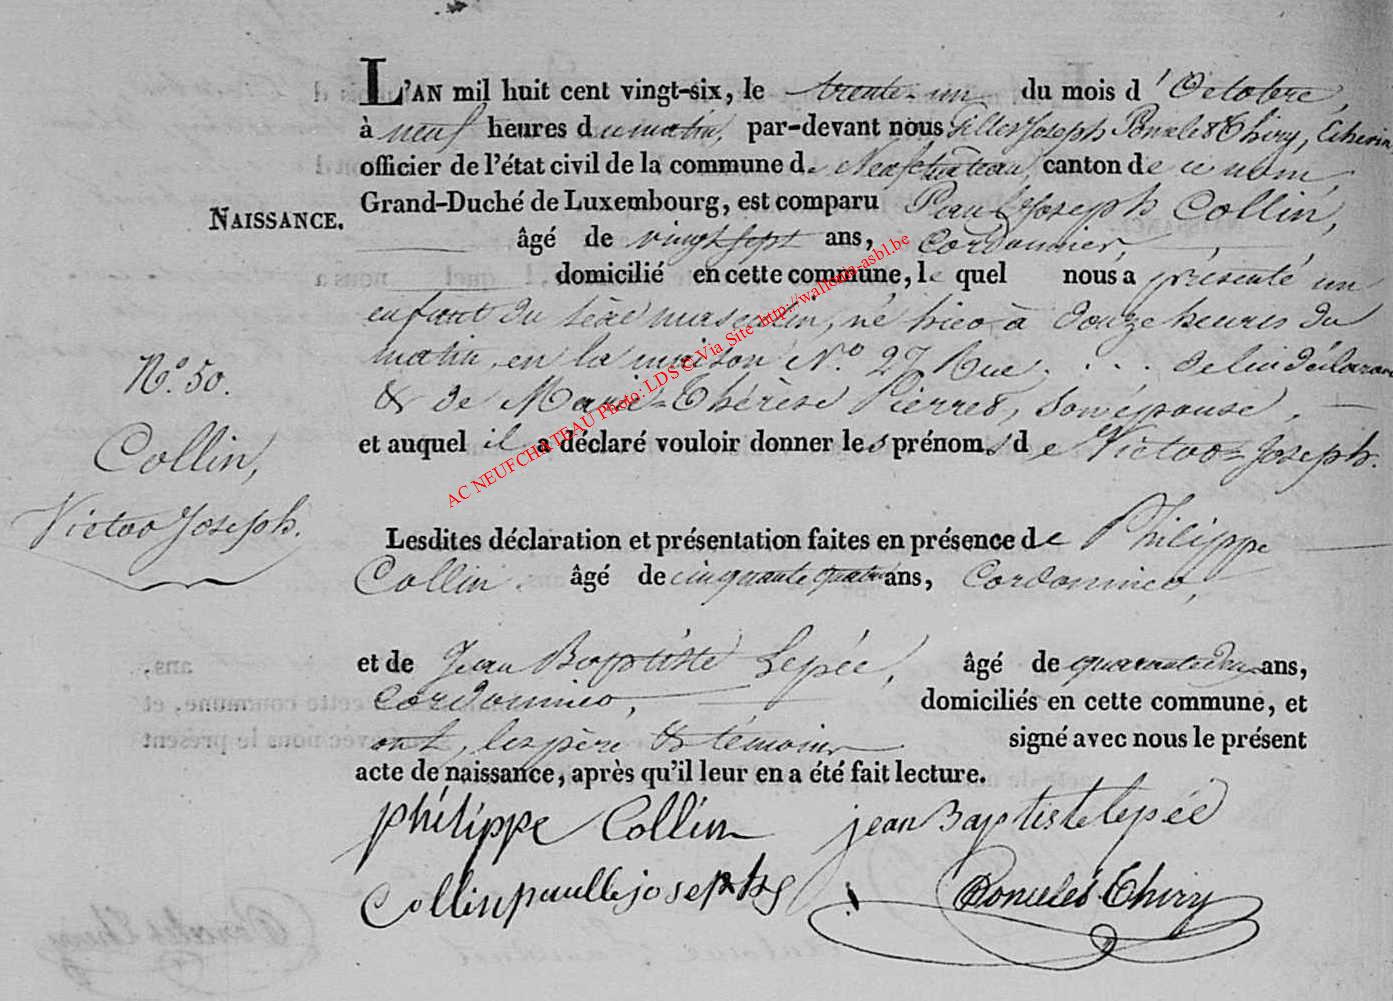 L'AN mil huit cent vingt-six, le trente-un du mois d'Octobre,
à neuf heures du matin, par-devant nous Gilles Joseph Poncelet Thiry, Echevin
officier de l'état civil de la commune de Neufchâteau, canton de ce nom,
Grand-Duché de Luxembourg, est comparu Paul Joseph Collin,
NAISSANCE.
âgé de vingt sept ans, Cordonnier,
domicilié en cette commune, lequel nous a présenté un
enfant du sèxe masculin, né hier à douze heures du
matin, en la maison N.o 27 Rue . . . de lui déclarant
& de Marie-Thérèse Pierret, son épouse
et auquel il a déclaré vouloir donner les prénoms de Victor-Joseph.
N.o 50.
Collin,
Victor Joseph.
Lesdites déclaration et présentation faites en présence de Philippe
Collin. âgé de cinquante quatre ans, Cordonnier,
et de Jean Baptiste Lepée, âgé de quarante deux ans,
Cordonnier, domiciliés en cette commune, et
ont, les père & témoins signé avec nous le présent
acte de naissance, après qu'il leur en a été fait lecture.
philippe Collin jean Baptiste lepée
Collin paulle joseph Poncelet-Thiry
AC NEUFCHATEAU Photo: LDS © Via Site http://wallonia-asbl.be